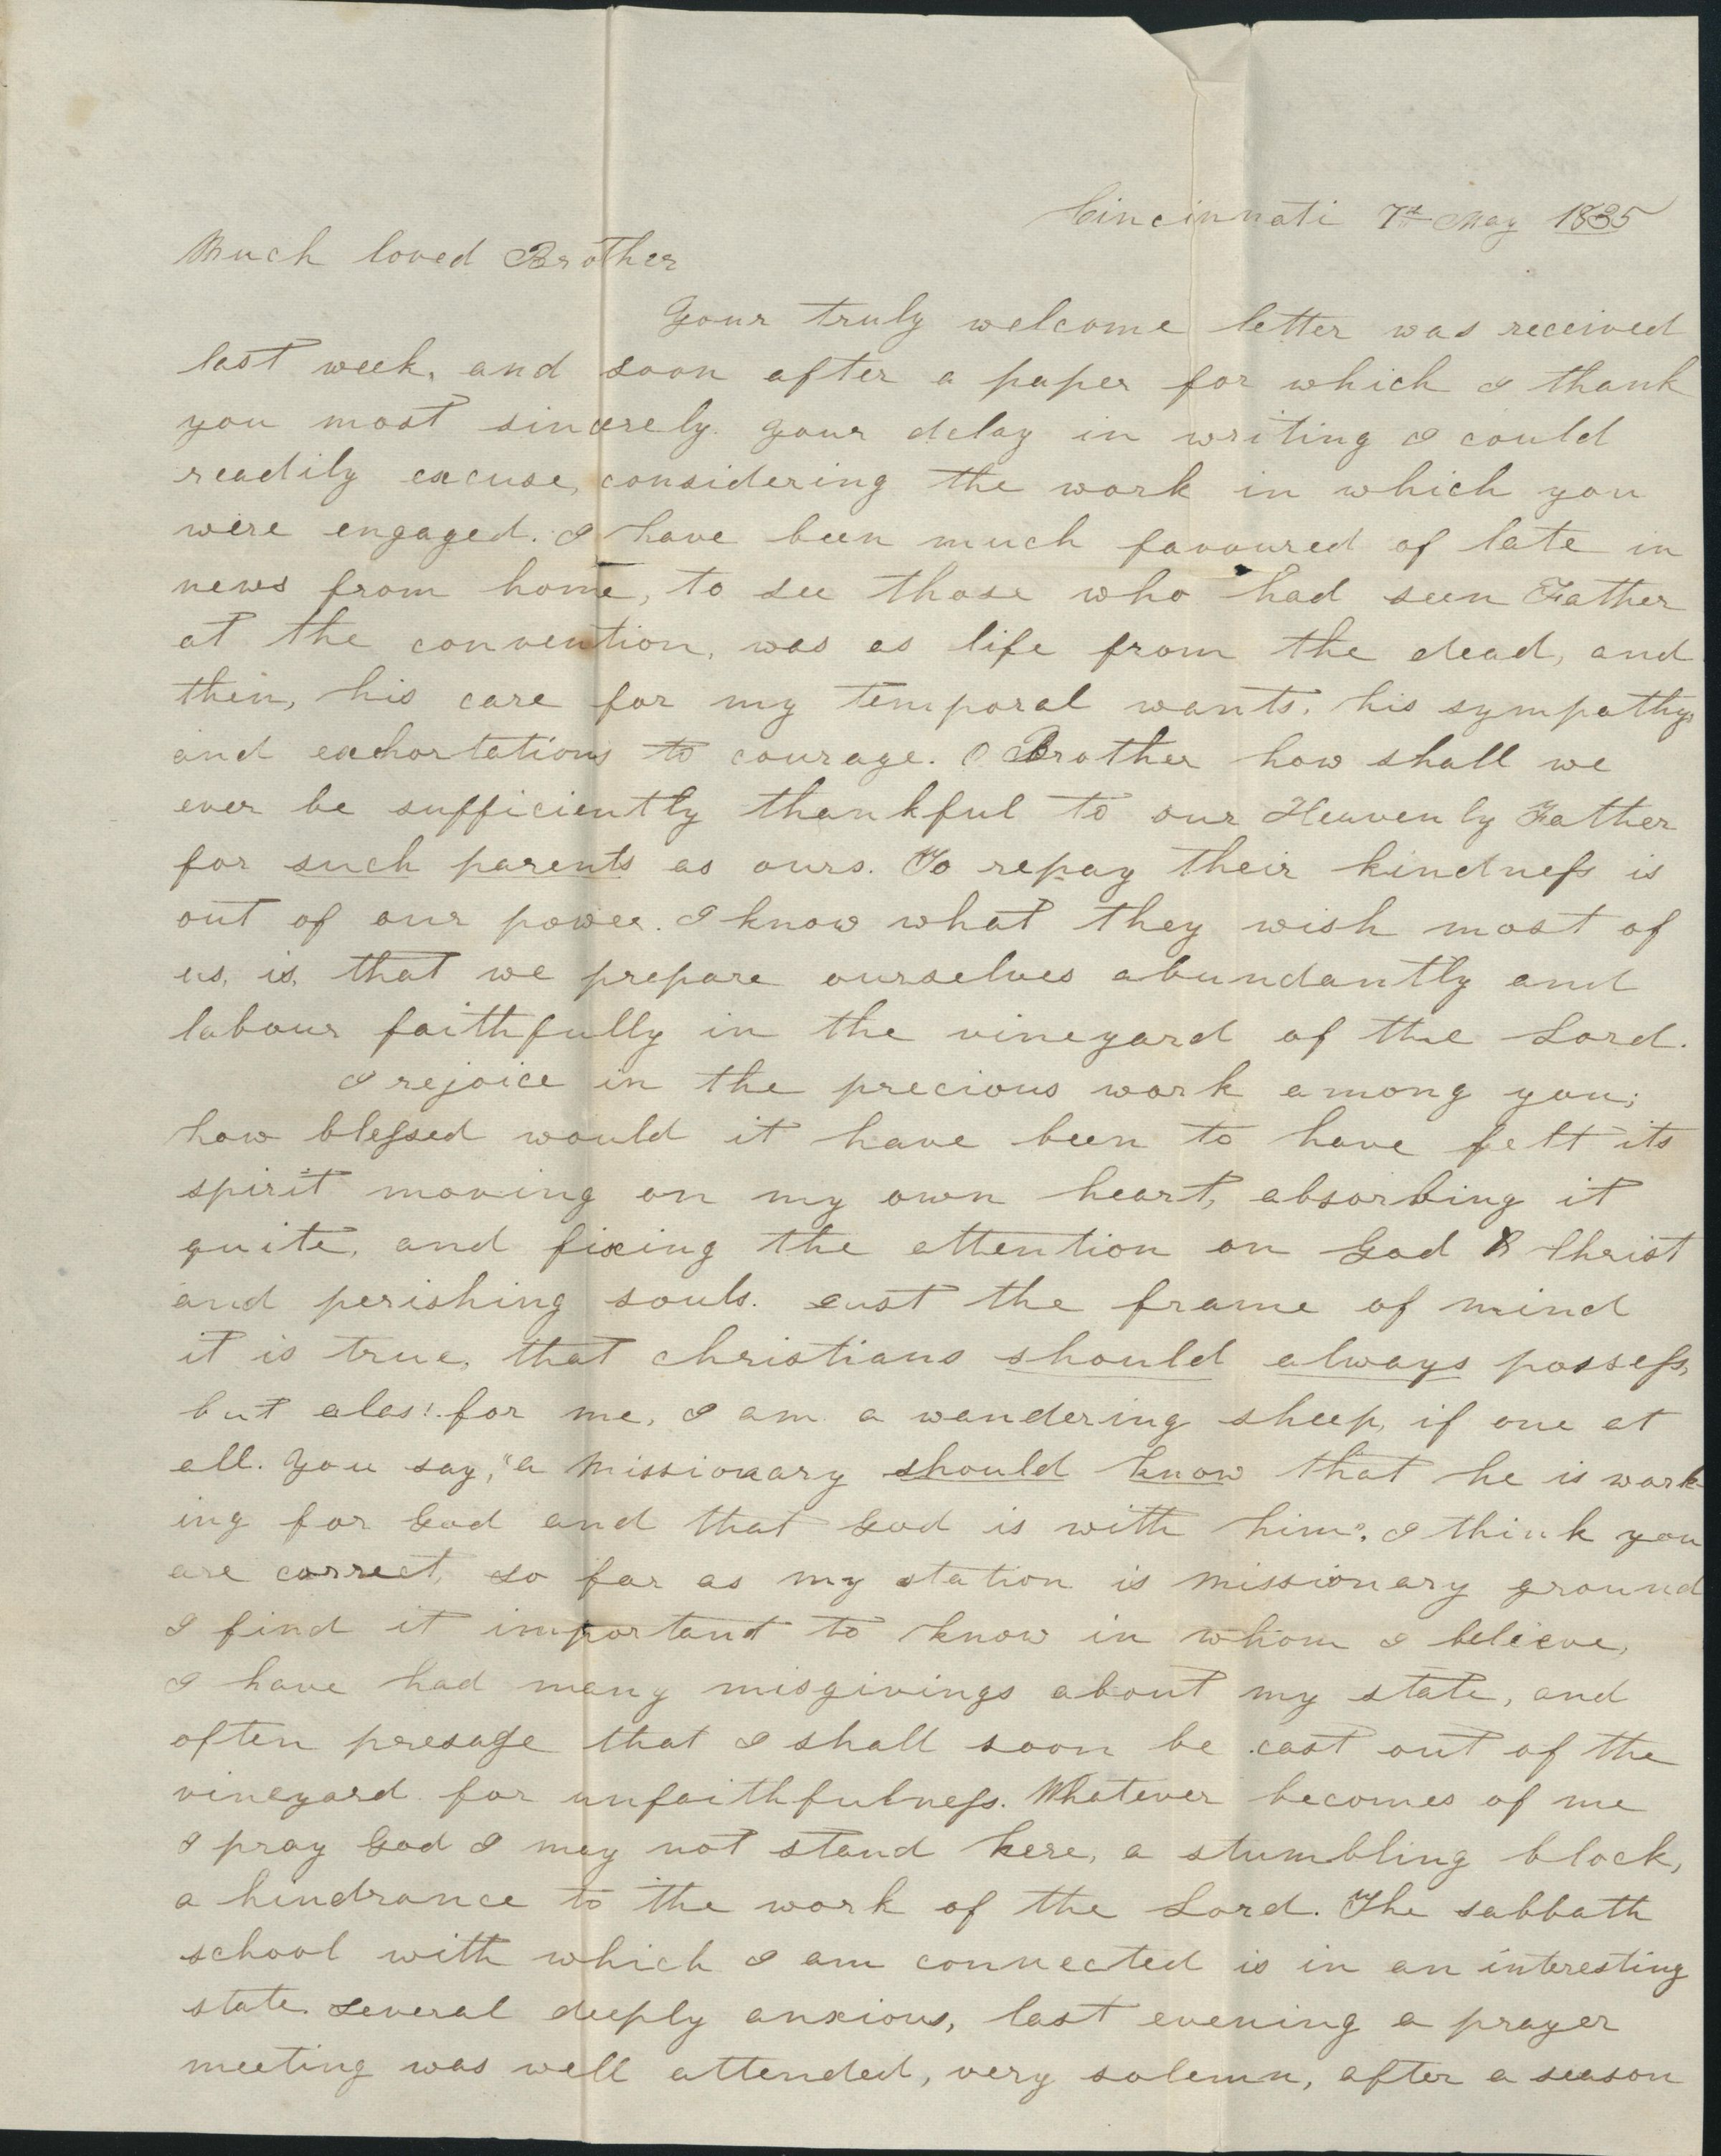 Cincinnati 7th May 1835
Much loved Brother
Your truly welcome letter was received
last week, and soon after a paper for which I thank
you most sincerely. Your delay in writing I could
readily excuse, considering the work in which you
were engaged. I have been much favoured of late in
news from home, to see those who had seen Father
at the convention, was as life from the dead, and
then, his care for my temporal wants, his sympathy,
and exhortations to courage. O Brother how shall we
ever be sufficiently thankful to our Heavenly Father
for such parents as ours. To repay their kindness is
out of our power. I know what they wish most of
us, is, that we prepare ourselves abundantly and
labour faithfully in the vineyard of the Lord.
I rejoice in the precious work among you;
how blessed would it have been to have felt its
spirit moving on my own heart, absorbing it
quite, and fixing the attention on God & Christ
and perishing souls. Just the frame of mind
it is true, that christians should always possess,
but alas! for me, I am a wandering sheep, if one at
all. You say, "a missionary should know that he is work
ing for God and that God is with him". I think you
are correct, so far as my station is missionary ground
I find it important to know in whom I believe,
I have had many misgivings about my state, and
often presage that I shall soon be cast out of the
vineyard for unfaithfulness. Whatever becomes of me
I pray God I may not stand here, a stumbling block,
a hindrance to the work of the Lord. The sabbath
school with which I am connected is in an interesting
state. Several deeply anxious, last evening a prayer
meeting was well attended, very solemn, after a season